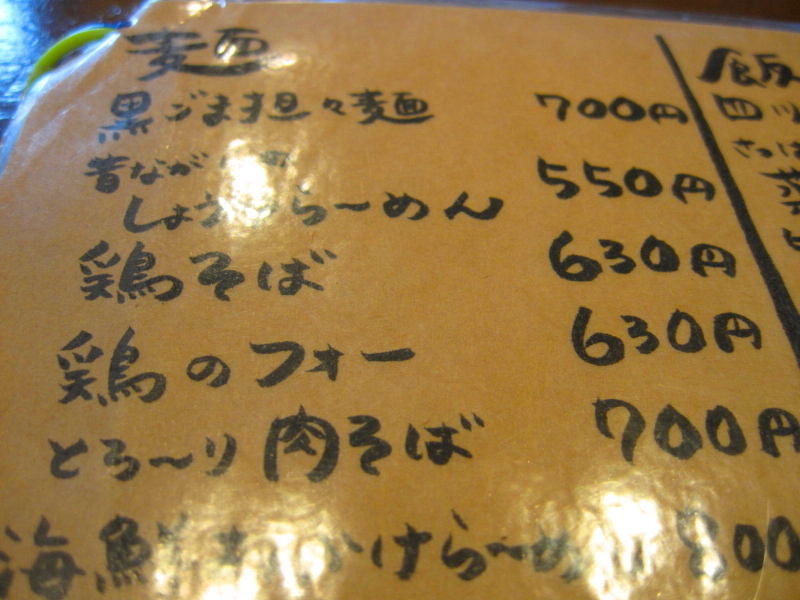 麺
黒ごま担々麺 700円
昔なが
しょうゆら〜めん 550円
鶏そば 630円
鶏のフォー 630円
とろ〜り肉そば 700円
海鮮 かけら〜め 800
飯
四川
さっぱ